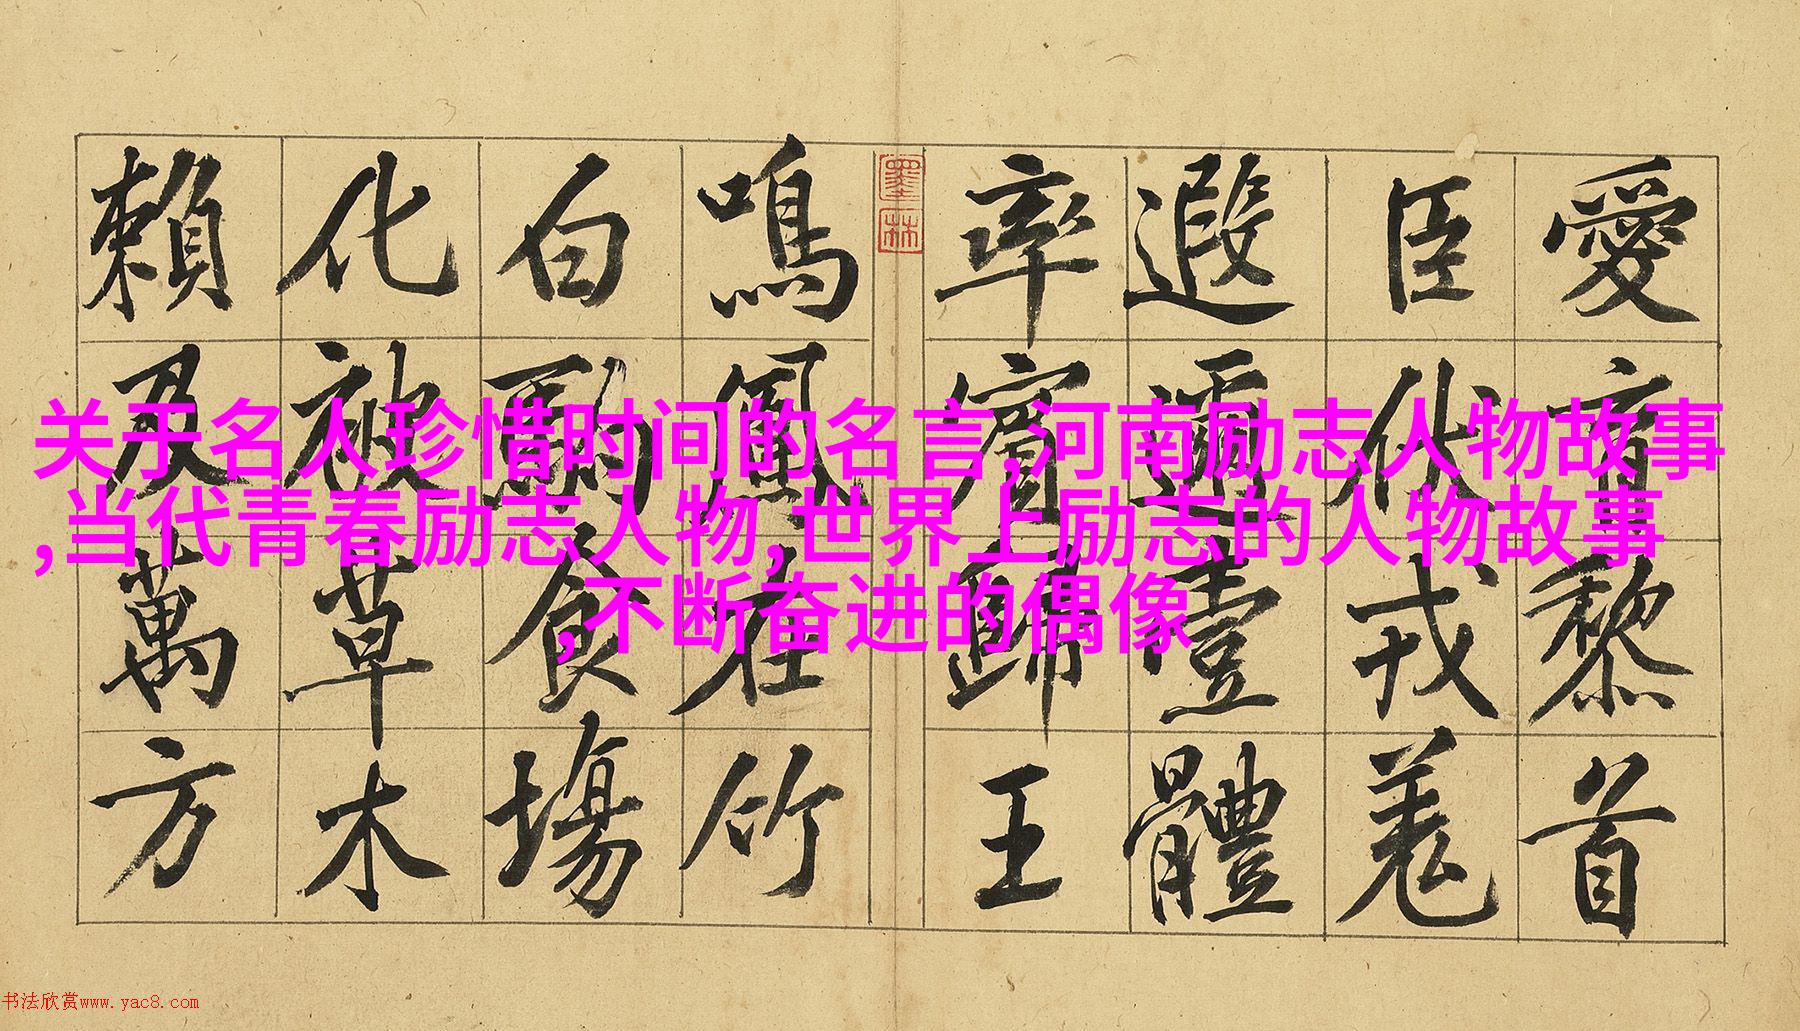 愛育黎首
臣伏戎羌
遐邇壹體
率賓歸王
墨林
鳴鳳在竹
白駒食場
化被草木
賴及萬方
关于名人珍惜时间的名言,河南励志人物故事
,当代青春励志人物,世界上励志的人物故事
,不断奋进的偶像
书法欣赏www.yac8.com